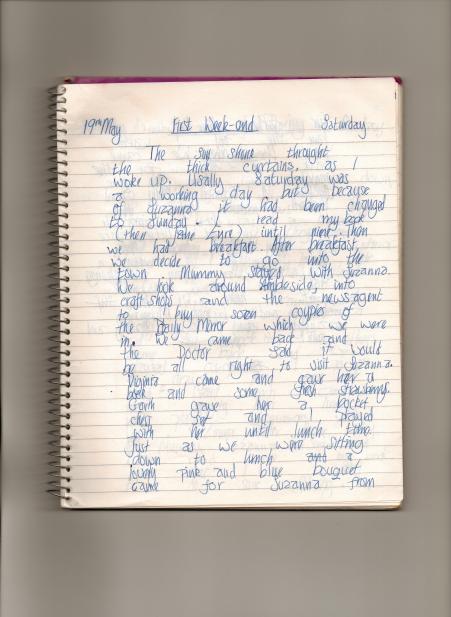 19th May First Week-end Saturday
The sun shone throught
the thick curtains, as I
woke up. Usally Saturday was
a working day but because
of Suzanna it had been changed
to Sunday. I read my book
(then  Eyre) until nine. Then
we had breakfast. After breakfast,
we decide to go into the
town. Mummy stayed with Suzanna.
We look around Ambleside, into
craft shops and the newsagent
to buy seven coupies of
the Daily Mirror which we were
in. We came back and
the Doctor said it would
be all right to visit Suzanna.
came and gave her a
book and some fresh strawberrys.
gave her a pocket
chess set and I played
with her until lunch time.
Just as we were sitting
down to lunch and a
lovely pink and blue bouquet
came for Suzanna from